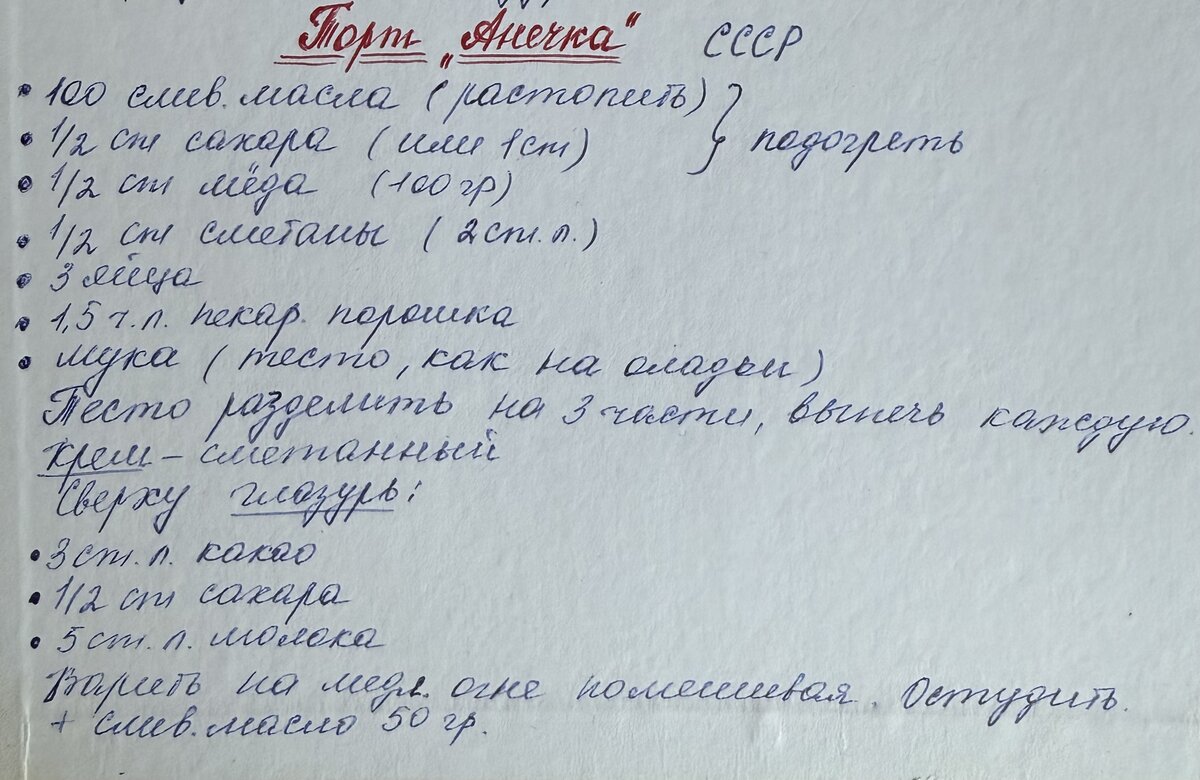 Торт „Анечка" СССР
• 100 слив. масла (растопить) } подогреть
• 1/2 ст сахара (или 1 ст)
• 1/2 ст мёда (100 гр)
• 1/2 ст сметаны (2 ст. л.)
• 3 яйца
• 1,5 ч. л. пекар. порошка
• мука (тесто, как на оладьи)
Тесто разделить на 3 части, выпечь каждую.
Крем – сметанный
Сверху глазурь:
• 3 ст. л. какао
• 1/2 ст сахара
• 5 ст. л. молока
Варить на медл. огне помешивая. Остудить.
+ слив. масло 50 гр.